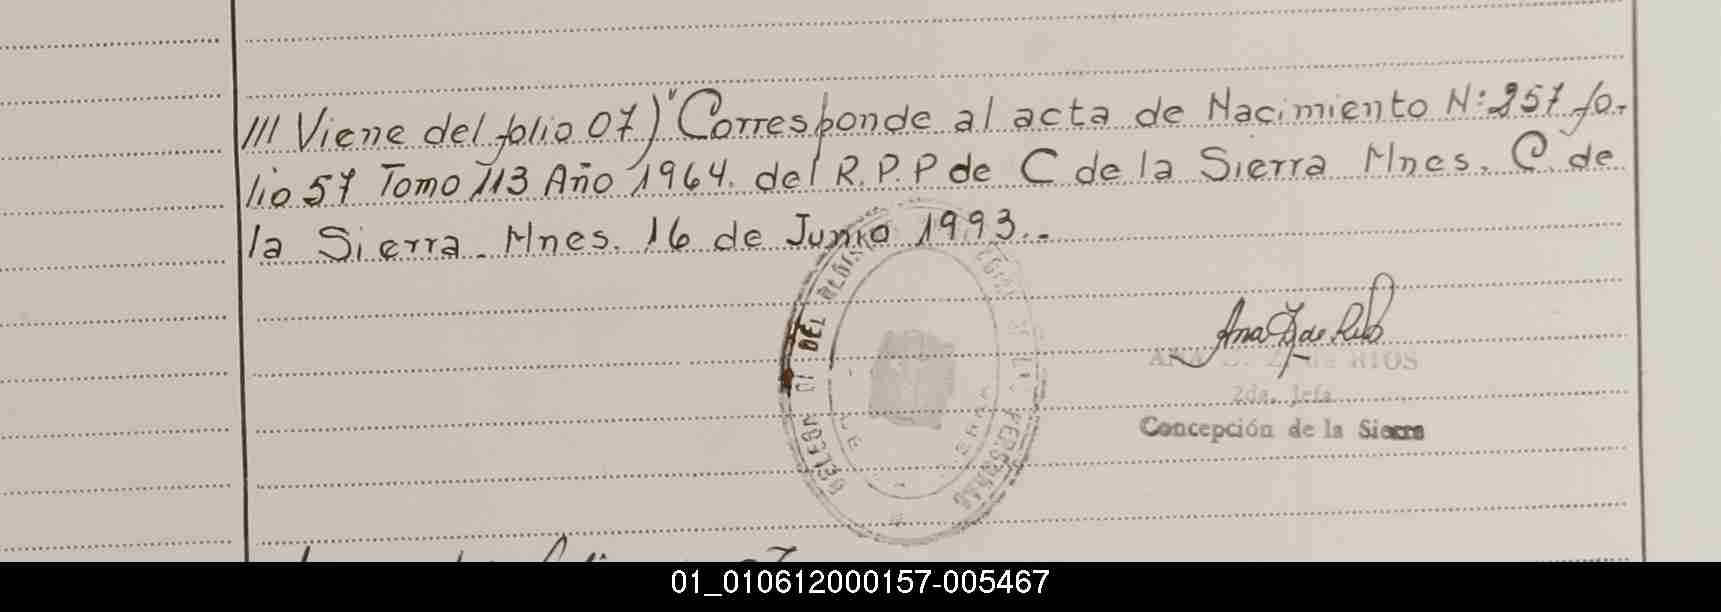 /// Viene del folio 07) "Corresponde al acta de Nacimiento N: 257 fo-
lio 57 Tomo 113 Año 1964. del R.P.P de C de la Sierra Mnes. C. de
la Sierra. Mnes. 16 de Junio 1993.-
Ana Z de Ríos
DEL
PERSONAS
RIOS
2da. Jefa
Concepción de la Sierra
01_010612000157-005467